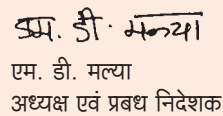 एम. डी. मल्या
एम. डी. मल्या
अध्यक्ष एवं प्रबध निदेशक